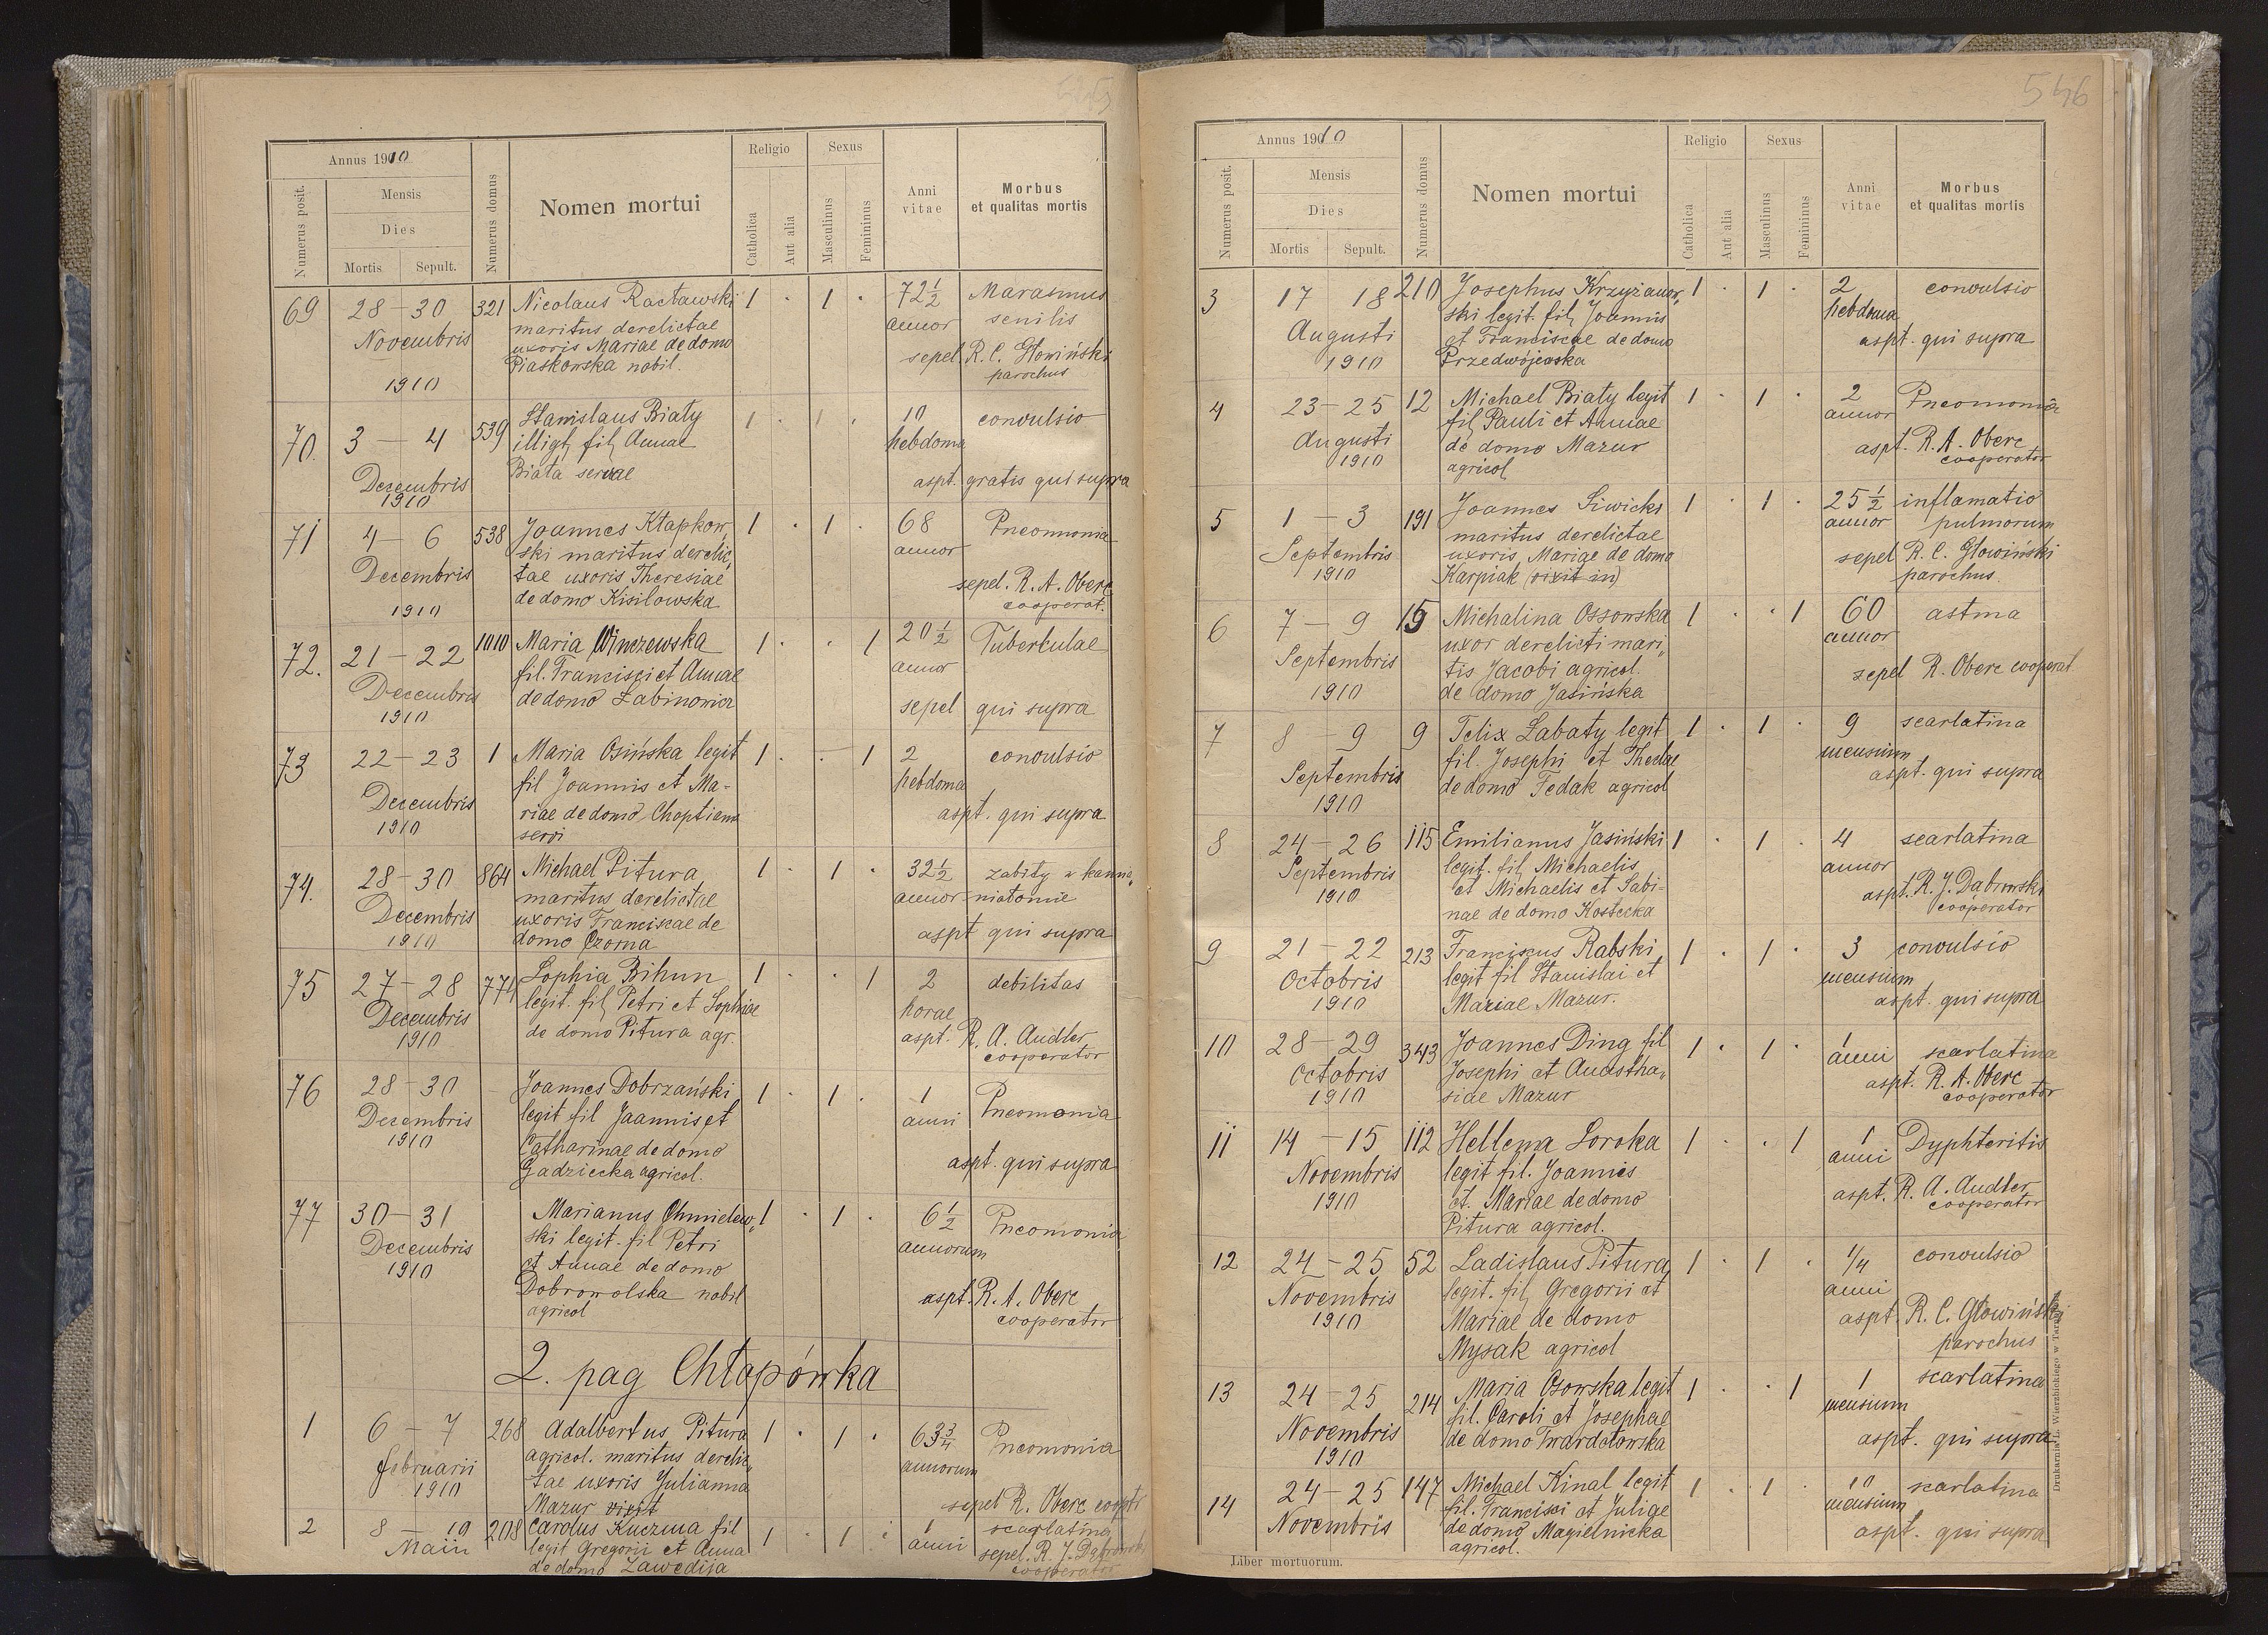 545
Annus 1910
Numerus posit.
Mensis
Dies
Mortis
Sepult.
Numerus domus
Nomen mortui
Religio
Catholica
Aut alia
Sexus
Masculinus
Femininus
Anni vitae
Morbus et qualitas mortis
69 28 – 30 321 Nicolaus Racławski 1 · 1 · 72½ Marasmus
Novembris maritus derelictae annor senilis
uxoris Mariae de domo sepel R. C. Głowiński
1910 Piaskowska nobil. parochus
70. 3 – 4 539 Stanislaus Biały 1 · 1 · 10 convulsio
illigt fil, Annae hebdoma
Decembris Biała servae aspt. gratis qui supra
1910
71 4 – 6 538 Joannes Kłapkow, 1 · 1 · 68 Pneomonia
Decembris ski maritus derelic, annor
tae uxoris Theresiae sepel. R. A. Oberc
1910 de domo Kisilowska cooperat.
72. 21 – 22 1010 Maria Winczewska 1 · · 1 20½ Tuberkulae
Decembris fil. Francisci et Annae annor
1910 de domo Łabinowicz sepel qui supra
73 22 – 23 1 Maria Osińska legit 1 · · 1 2 convulsio
Decembris fil Joannis et Ma- hebdoma
1910 riae de domo Choptiana aspt. qui supra
servi
74. 28 – 30 864 Michael Pitura 1 · 1 · 32½ zabity w kamie,
Decembris maritus derelictae annor niołomie
1910 uxoris Franciscae de aspt qui supra
domo Czoma
75 27 – 28 774 Sophia Bihun 1 · · 1 2 debilitas
Decembris legit. fil, Petri et Sophiae horae
1910 de domo Pitura agr. aspt. R. A. Audler
cooperator
76 28 – 30 Joannes Dobrzański 1 · 1 · 1 Pneomonia
Decembris legit fil Joannis et anni
1910 Catharinae de domo aspt. qui supra
Gadziecka agricol.
77 30 – 31 Marianus Chmielew, 1 · 1 · 6½ Pneomonia
Decembris ski legit. fil Petri annorum
1910 et Annae de domo
Dobrowolska nobil aspt. R. A. Oberc
agricol cooperator
2. pag Chłopówka
1 6 – 7 268 Adalbertus Pitura 1 · 1 · 63¾ Pneomonia
februarii agricol. maritus derelic, annorum
1910 tae uxoris Julianna
Mazur vixit sepel R. Oberc cooptr
2 8 – 19 208 Carolus Kuczma fil 1 · 1 · 1 scarlatina
Maiii legit Gregorii et Anna anni sepel. R. J. Dąbrowski
de domo Zawedija cooperator
546
Annus 1910
Numerus posit.
Mensis
Dies
Mortis
Sepult.
Numerus domus
Nomen mortui
Religio
Catholica
Aut alia
Sexus
Masculinus
Femininus
Anni vitae
Morbus et qualitas mortis
3 17 18 210 Josephus Krzyżanow, 1 · 1 · 2 convulsio
Augusti ski legit. fil, Joannis hebdoma
1910 et Franciscae de domo aspt. qui supra
Przedwojewska
4 23 – 25 12 Michael Biały legit 1 · 1 · 2 Pneomonia
Augusti fil, Pauli et Annae annor
1910 de domo Mazur aspt. R. A. Oberc
agricol cooperator
5 1 – 3 191 Joannes Siwicki 1 · 1 · 25½ inflamatio
Septembris maritus derelictae annor pulmorum
1910 uxoris Mariae de domo sepel R. C. Głowiński
Karpiak (vixit in) parochus
6 7 – 9 15 Michalina Ossowska 1 · · 1 60 astma
Septembris uxor derelicti mari, annor
1910 tis Jacobi agricol. sepel R. Oberc cooperat
de domo Jasińska
7 8 – 9 9 Felix Łabaty legit 1 · 1 · 9 scarlatina
Septembris fil. Josephi et Theclae mensium
1910 de domo Fedak agricol aspt. qui supra
8 24 – 26 115 Emilianus Jasiński 1 · 1 · 4 scarlatina
Septembris legit. fil, Michaelis annor
1910 et Michaelis et Sabi- aspt. R. J. Dąbrowski
nae de domo Kostecka cooperator
9 21 – 22 213 Franciscus Rabski 1 · 1 · 3 convulsio
Octobris legit fil Stanislai et mensium
1910 Mariae Mazur. aspt. qui supra
10 28 – 29 343 Joannes Ding fil 1 · 1 · 1 anni scarlatina
Octobris Josephi et Anastha, aspt. R. A. Oberc
1910 siae Mazur cooperator
11 14 – 15 112 Hellena Soroka 1 · · 1 1 Dyphteritis
Novembris legit fil. Joannis anni
1910 et Mariae de domo aspt. R. A. Audler
Pitura agricol. cooperator
12 24 – 25 52 Ladislaus Pitura 1 · 1 · ¼ convulsio
Novembris legit. fil, Gregorii et anni
1910 Mariae de domo aspt. R. C. Głowiński
Mysak agricol parochus
13 24 – 25 214 Maria Osowska legit 1 · · 1 1 scarlatina
Novembris fil. Caroli et Josephae mensium
1910 de domo Twardotowska aspt. qui supra
14 24 – 25 147 Michael Kinal legit 1 · 1 · 10 scarlatina
Novembris fil. Francisci et Juliae mensium
de domo Magielnicka aspt. qui supra
agricol.
Liber mortuorum.
Drukarnia L. Wierzbickiego w Tarnopolu